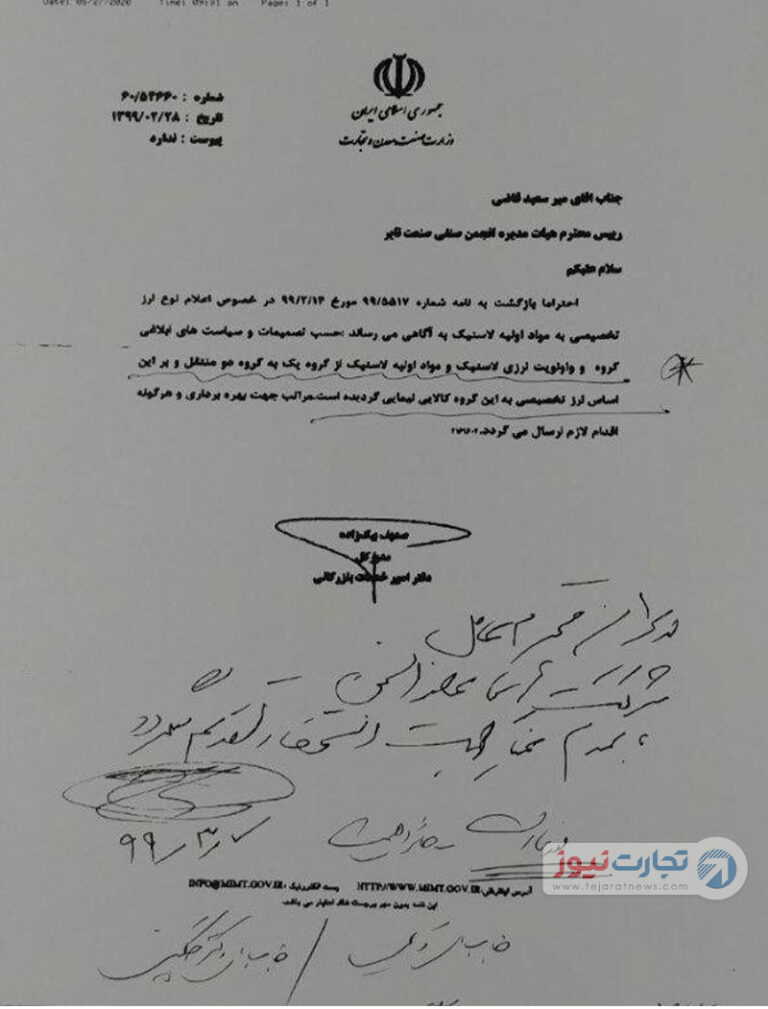 Date: 05/27/2020 Time: 09:31 am Page: 1 of 1
جمهوری اسلامی ایران
وزارت صنعت، معدن و تجارت
شماره : ۶۰/۵۴۶۶۰
تاریخ : ۱۳۹۹/۰۲/۲۸
پیوست : ندارد
جناب اقای میر سعید قاضی
رییس محترم هیات مدیره انجمن صنفی صنعت تایر
سلام علیکم
احتراما بازگشت به نامه شماره ۹۹/۵۵۱۷ مورخ ۹۹/۲/۱۴ در خصوص اعلام نوع ارز
تخصیصی به مواد اولیه لاستیک به آگاهی می رساند :حسب تصمیمات و سیاست های ابلاغی
گروه و واولویت ارزی لاستیک و مواد اولیه لاستیک از گروه یک به گروه دو منتقل و بر این
اساس ارز تخصیصی به این گروه کالایی نیمایی گردیده است.مراتب جهت بهره برداری و هرگونه
اقدام لازم ارسال می گردد.
مدیرکل
دفتر امور خدمات بازرگانی
مدیران محترم عامل
جهت استحضار تقدیم میگردد
۹۹/۳/۷
تجارت نیوز
www.tejaratnews.com
آدرس اینترنتی:HTTP://WWW.MIMT.GOV.IR پست الکترونیک :INFO@MIMT.GOV.IR
این نامه بدون مهر برجسته فاقد اعتبار می باشد.